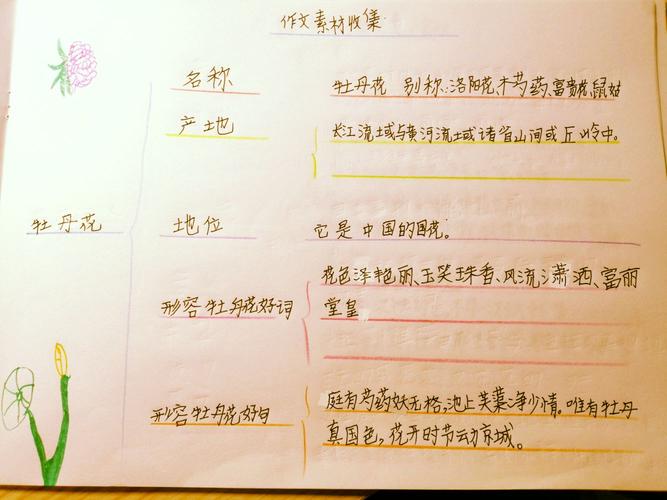 作文素材收集
名称
牡丹花 别称:洛阳花、木芍药、富贵花、鼠姑
产地
长江流土或与黄河流土或诸省山间或丘岭中。
牡丹花
地位
它是中国的国花。
形容牡丹花好词
花色泽艳丽、玉笑珠香、风流潇洒、富丽
堂皇
形容牡丹花好句
庭有芍药妖无格,池上芙蕖净少情。唯有牡丹
真国色,花开时节动京城。